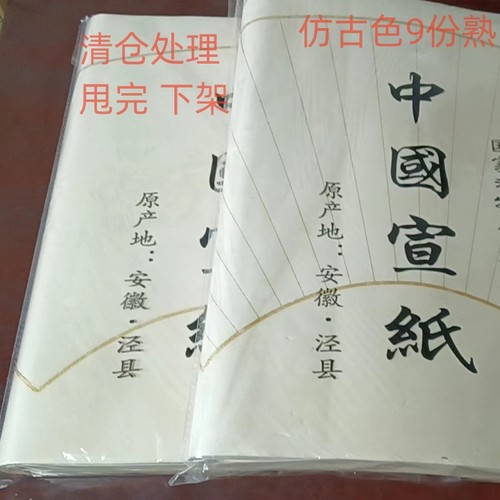 清仓处理
甩完 下架
仿古色9份熟
中國宣紙
原产地：安徽·泾县
原产地：安徽·泾县